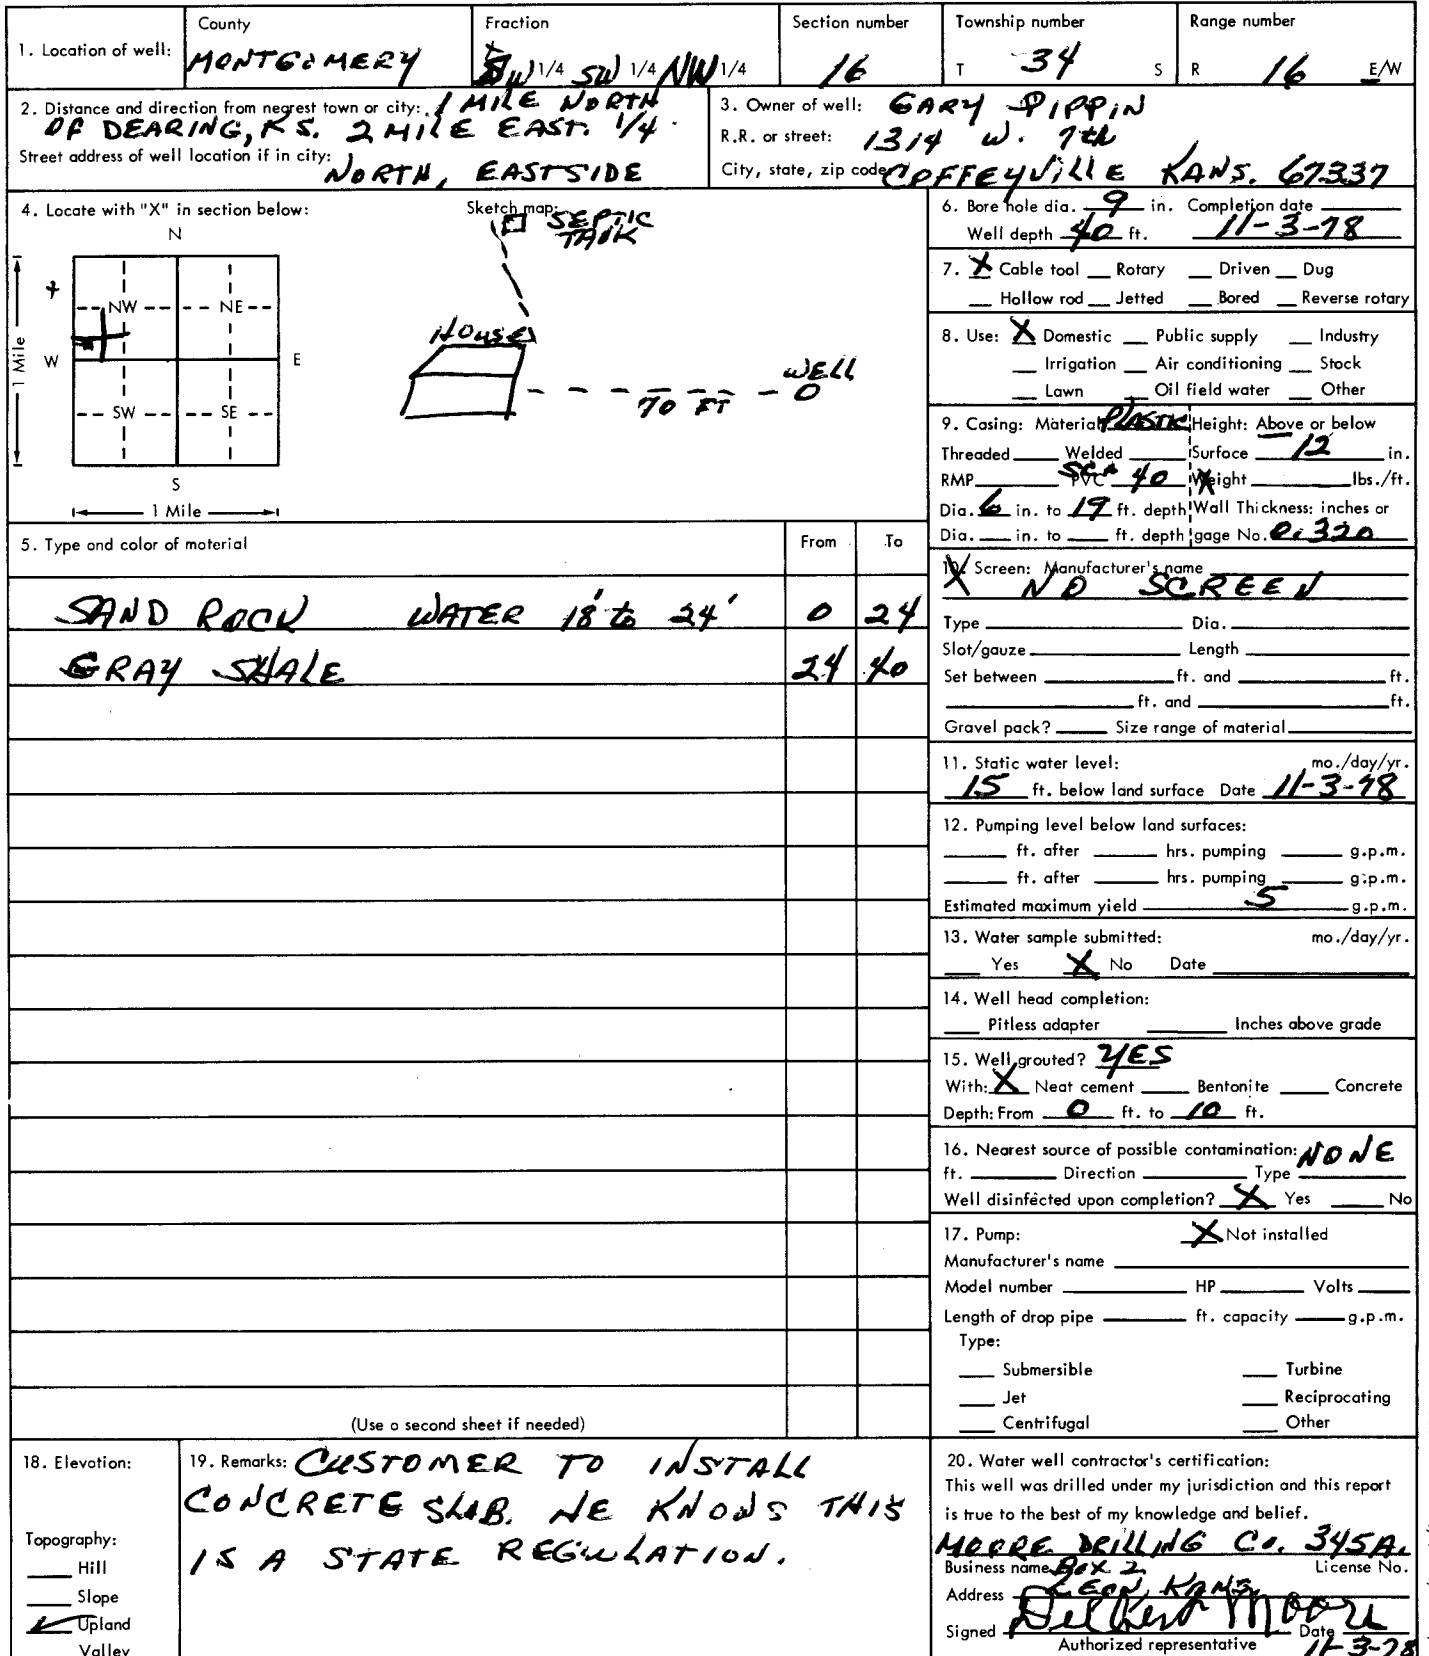 County Fraction Section number Township number Range number
1. Location of well: MONTGOMERY SW 1/4 SW 1/4 NW 1/4 16 T 34 S R 16 E/W
2. Distance and direction from nearest town or city: 1 MILE NORTH
OF DEARING, KS. 2 MILE EAST. 1/4
Street address of well location if in city: NORTH, EASTSIDE
3. Owner of well: GARY PIPPIN
R.R. or street: 1314 W. 7th
City, state, zip code: COFFEYVILLE KANS. 67337
4. Locate with "X" in section below:
N
NW NE
W E
SW SE
S
1 Mile
1 Mile
Sketch map:
SEPTIC
TANK
HOUSE
WELL
70 FT
5. Type and color of material From To
SAND ROCK WATER 18' to 24' 0 24
GRAY SHALE 24 40
(Use a second sheet if needed)
6. Bore hole dia. 9 in. Completion date
Well depth 40 ft. 11-3-78
7. X Cable tool Rotary Driven Dug
Hollow rod Jetted Bored Reverse rotary
8. Use: X Domestic Public supply Industry
Irrigation Air conditioning Stock
Lawn Oil field water Other
9. Casing: Material PLASTIC Height: Above or below
Threaded Welded Surface 12 in.
RMP PVC SCH 40 Weight lbs./ft.
Dia. 6 in. to 19 ft. depth Wall Thickness: inches or
Dia. in. to ft. depth gage No. 0.320
10. Screen: Manufacturer's name
NO SCREEN
Type Dia.
Slot/gauze Length
Set between ft. and ft.
ft. and ft.
Gravel pack? Size range of material
11. Static water level: mo./day/yr.
15 ft. below land surface Date 11-3-78
12. Pumping level below land surfaces:
ft. after hrs. pumping g.p.m.
ft. after hrs. pumping g.p.m.
Estimated maximum yield 5 g.p.m.
13. Water sample submitted: mo./day/yr.
Yes X No Date
14. Well head completion:
Pitless adapter Inches above grade
15. Well grouted? YES
With: X Neat cement Bentonite Concrete
Depth: From 0 ft. to 10 ft.
16. Nearest source of possible contamination: NONE
ft. Direction Type
Well disinfected upon completion? X Yes No
17. Pump: X Not installed
Manufacturer's name
Model number HP Volts
Length of drop pipe ft. capacity g.p.m.
Type:
Submersible Turbine
Jet Reciprocating
Centrifugal Other
18. Elevation:
Topography:
Hill
Slope
Upland
Valley
19. Remarks: CUSTOMER TO INSTALL
CONCRETE SLAB. HE KNOWS THIS
IS A STATE REGULATION.
20. Water well contractor's certification:
This well was drilled under my jurisdiction and this report
is true to the best of my knowledge and belief.
MOORE DRILLING Co. 345A.
Business name BOX 2 License No.
Address LEON, KANS
Signed Delbert Moore Date 11-3-78
Authorized representative